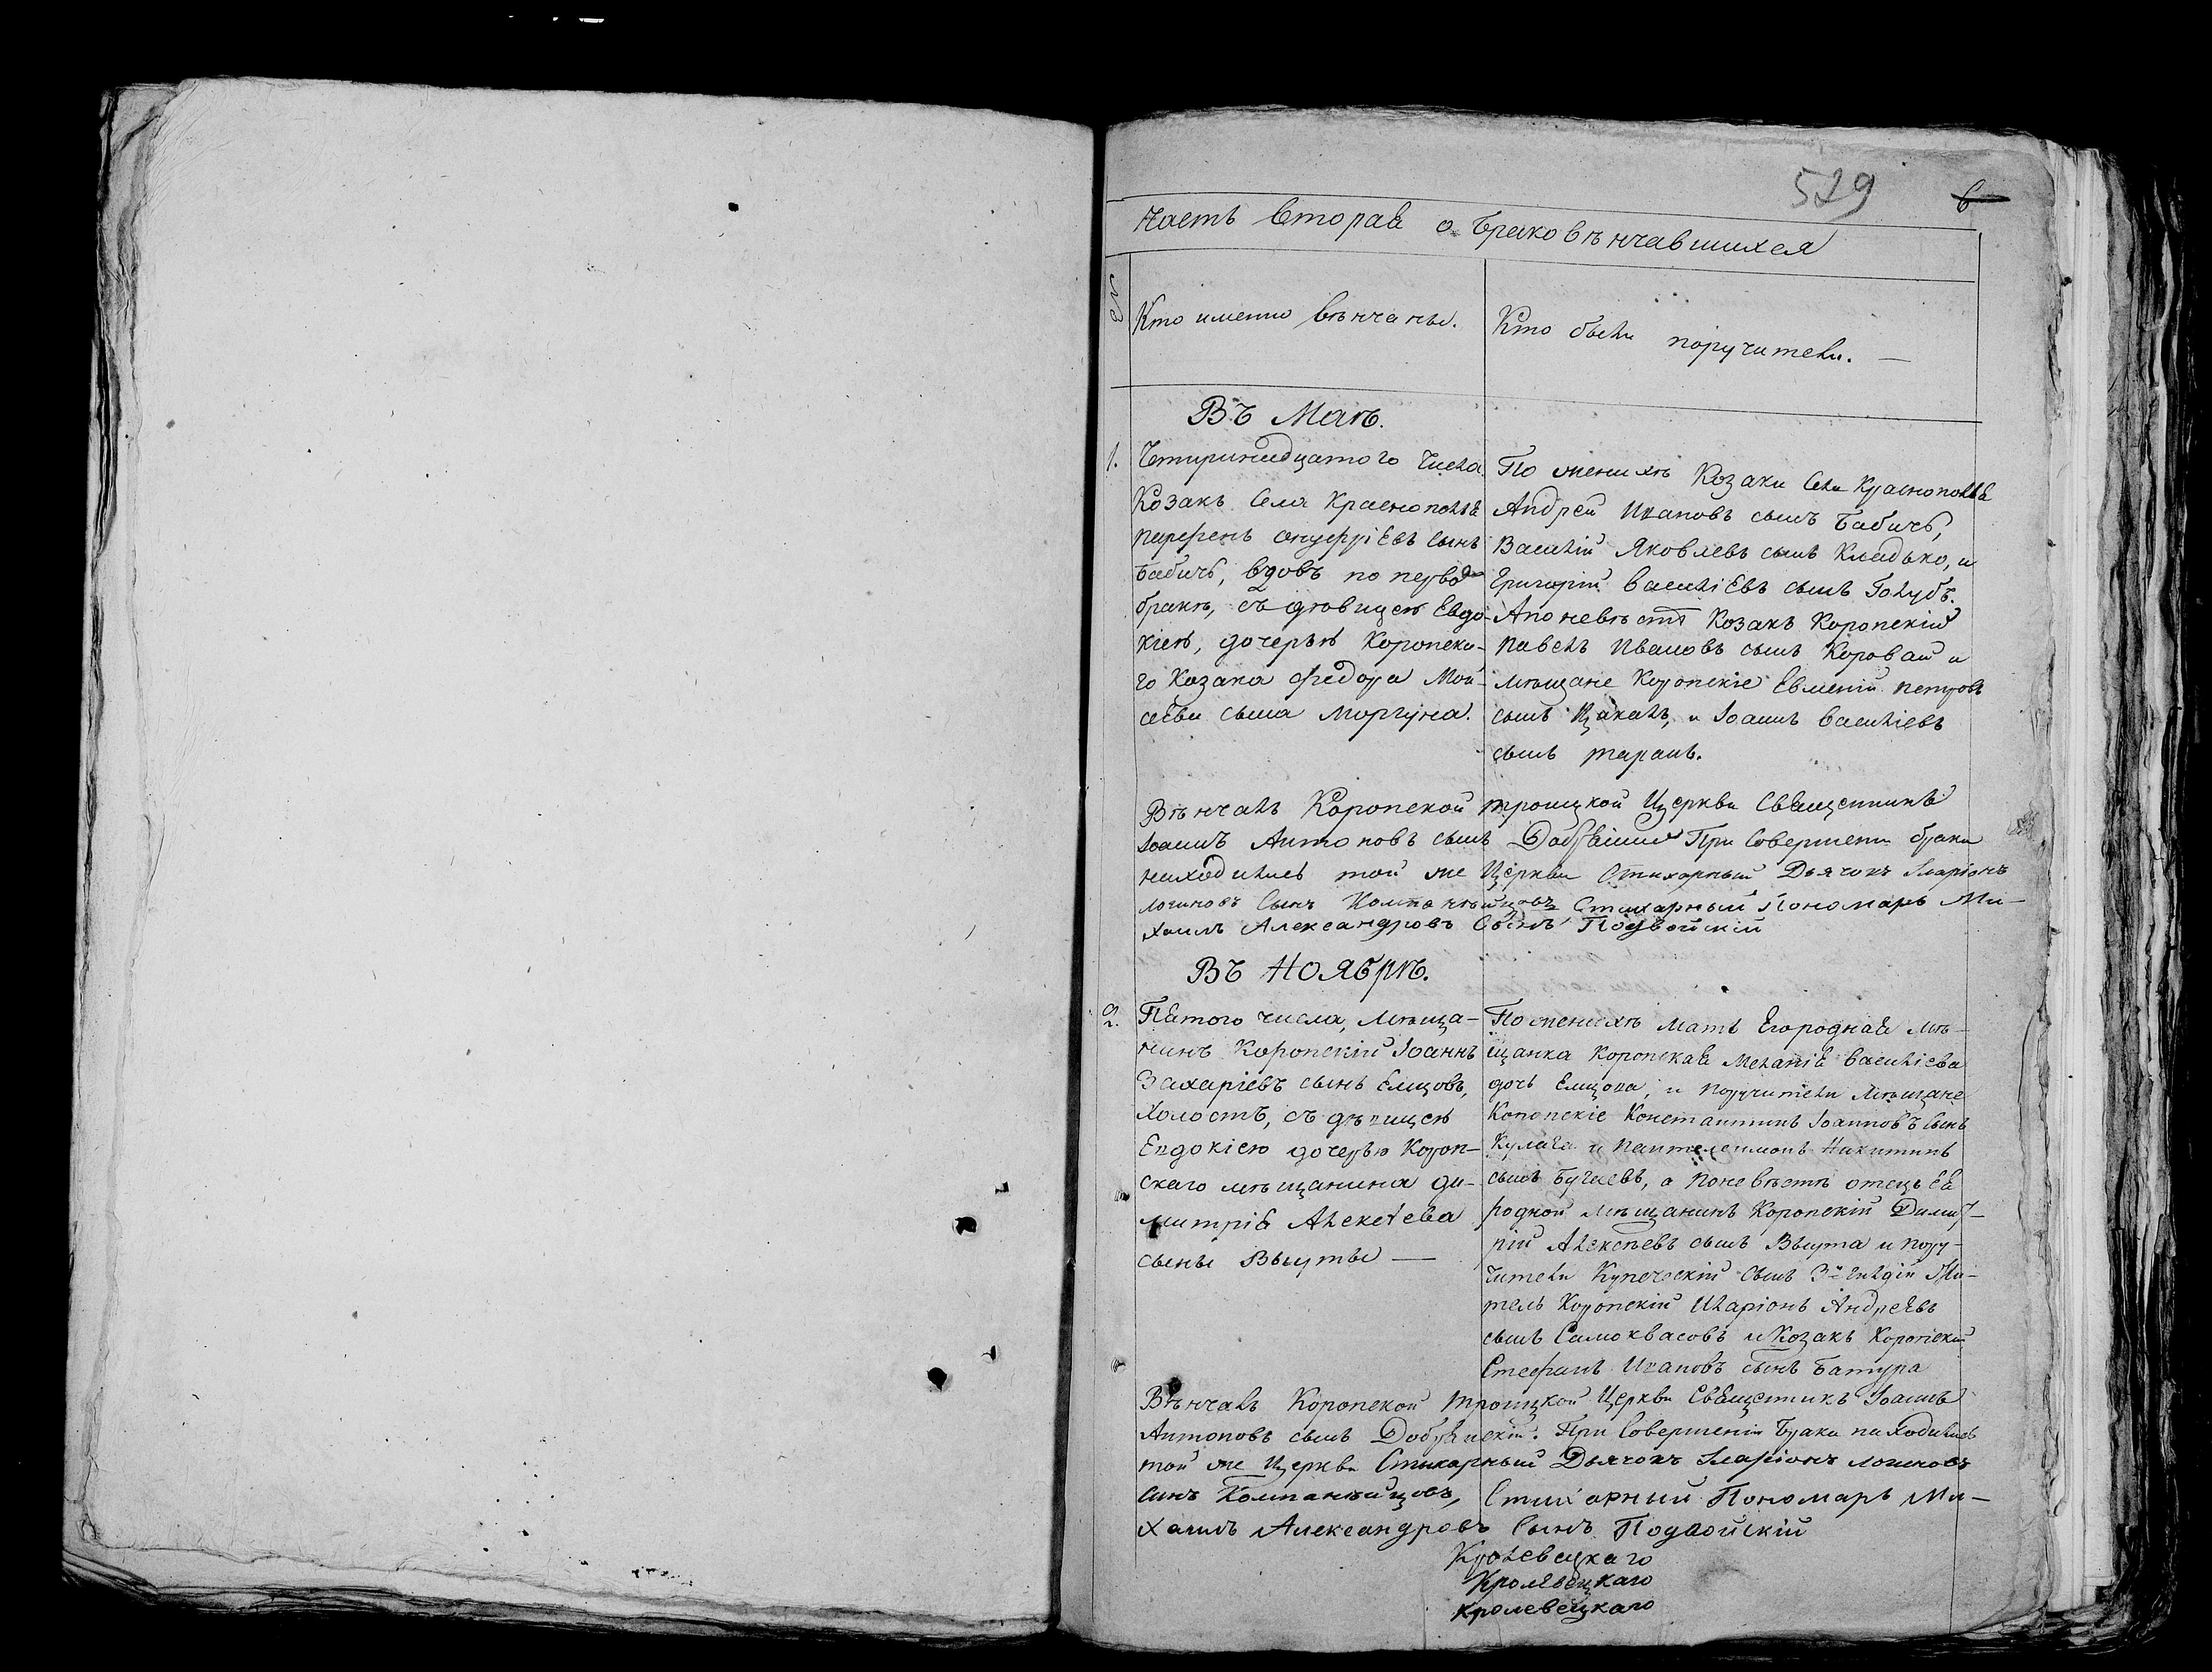 529 6
Часть вторая о Браковѣнчавшихся
№
Кто именно вѣнчаны.
Кто были поручители. —
Въ Маѣ.
1. Четиринадцатого Числа
Козакъ Села Краснополья
парфенъ онуфріевъ сынъ
Бабичъ, вдовъ по первом
бракѣ, съ дѣвицею Евдо-
кіею, дочерью Коропска-
го Козака Федора Мой-
сеева сына Моргуна.
По женихѣ Козаки Села Краснополья
Андрей Ивановъ сынъ Бабичъ,
Василій Яковлевъ сынъ Кладько, и
Григорій Василіевъ сынъ Голубъ.
Апоневѣстѣ Козакъ Коропскій
Павелъ Ивановъ сынъ Коровай и
мѣщане Коропскіе Евменій петровъ
сынъ Цакалъ, и Іоаннъ Василіевъ
сынъ таранъ.
Вѣнчалъ Коропской троицкой Церкви Священникъ
Іоаннъ Антоновъ сынъ При Совершени брака
находились той же Церкви Стихарный Дьячокъ Іларіонъ
логиновъ Сынъ Компанѣйцовъ Стихарный Пономарь Ми-
хаилъ Александровъ Сынъ Подвойскій
Въ Ноябрѣ.
2. Пятого числа, Мѣща-
нинъ Коропскій Іоаннъ
Захаріевъ сынъ Емцовъ,
Холостъ, съ дѣвицею
Евдокіею дочерью Короп-
скаго мѣщанина Ди-
митрія Алексѣева
сына Вьюты —
Поженихѣ мать Егородная мѣ-
щанка Коропская Меланія Василіева
дочь Емцова, и поручители Мѣщане
Коропскіе Константинъ Іоанновъ Сынъ
Кулага и Пантелеимонъ Никитинъ
сынъ Бугаевъ, а поневѣстѣ отецъ Ея
родной мѣщанинъ Коропскій Димит-
рій Алексѣевъ сынъ Вьюта и пору-
чители Купеческій сынъ 3й гилдіи Жи-
тель Коропскій Иларіонъ Андреевъ
сынъ Самоквасовъ и Козакъ Коропскій
Стефанъ Ивановъ сынъ Батура
Вѣнчалъ Коропской Троицкой Церкви Священникъ Іоаннъ
Антоновъ сынъ Добрянскій. При Совершеніи Брака находились
той же Церкви Стихарный Дьячокъ Іларіонъ логиновъ
Синъ Компанѣйцовъ, Стихарный Пономарь Ми-
хаилъ Александровъ Сынъ Подвойскій
Кролевецкаго
Кролевецкаго
кролевецкаго